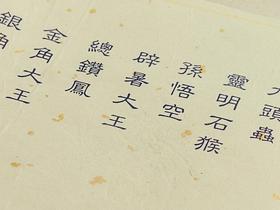 頭蟲
靈明石猴
孫悟空
辟暑大王
總鑽鳳
金角大王
銀角